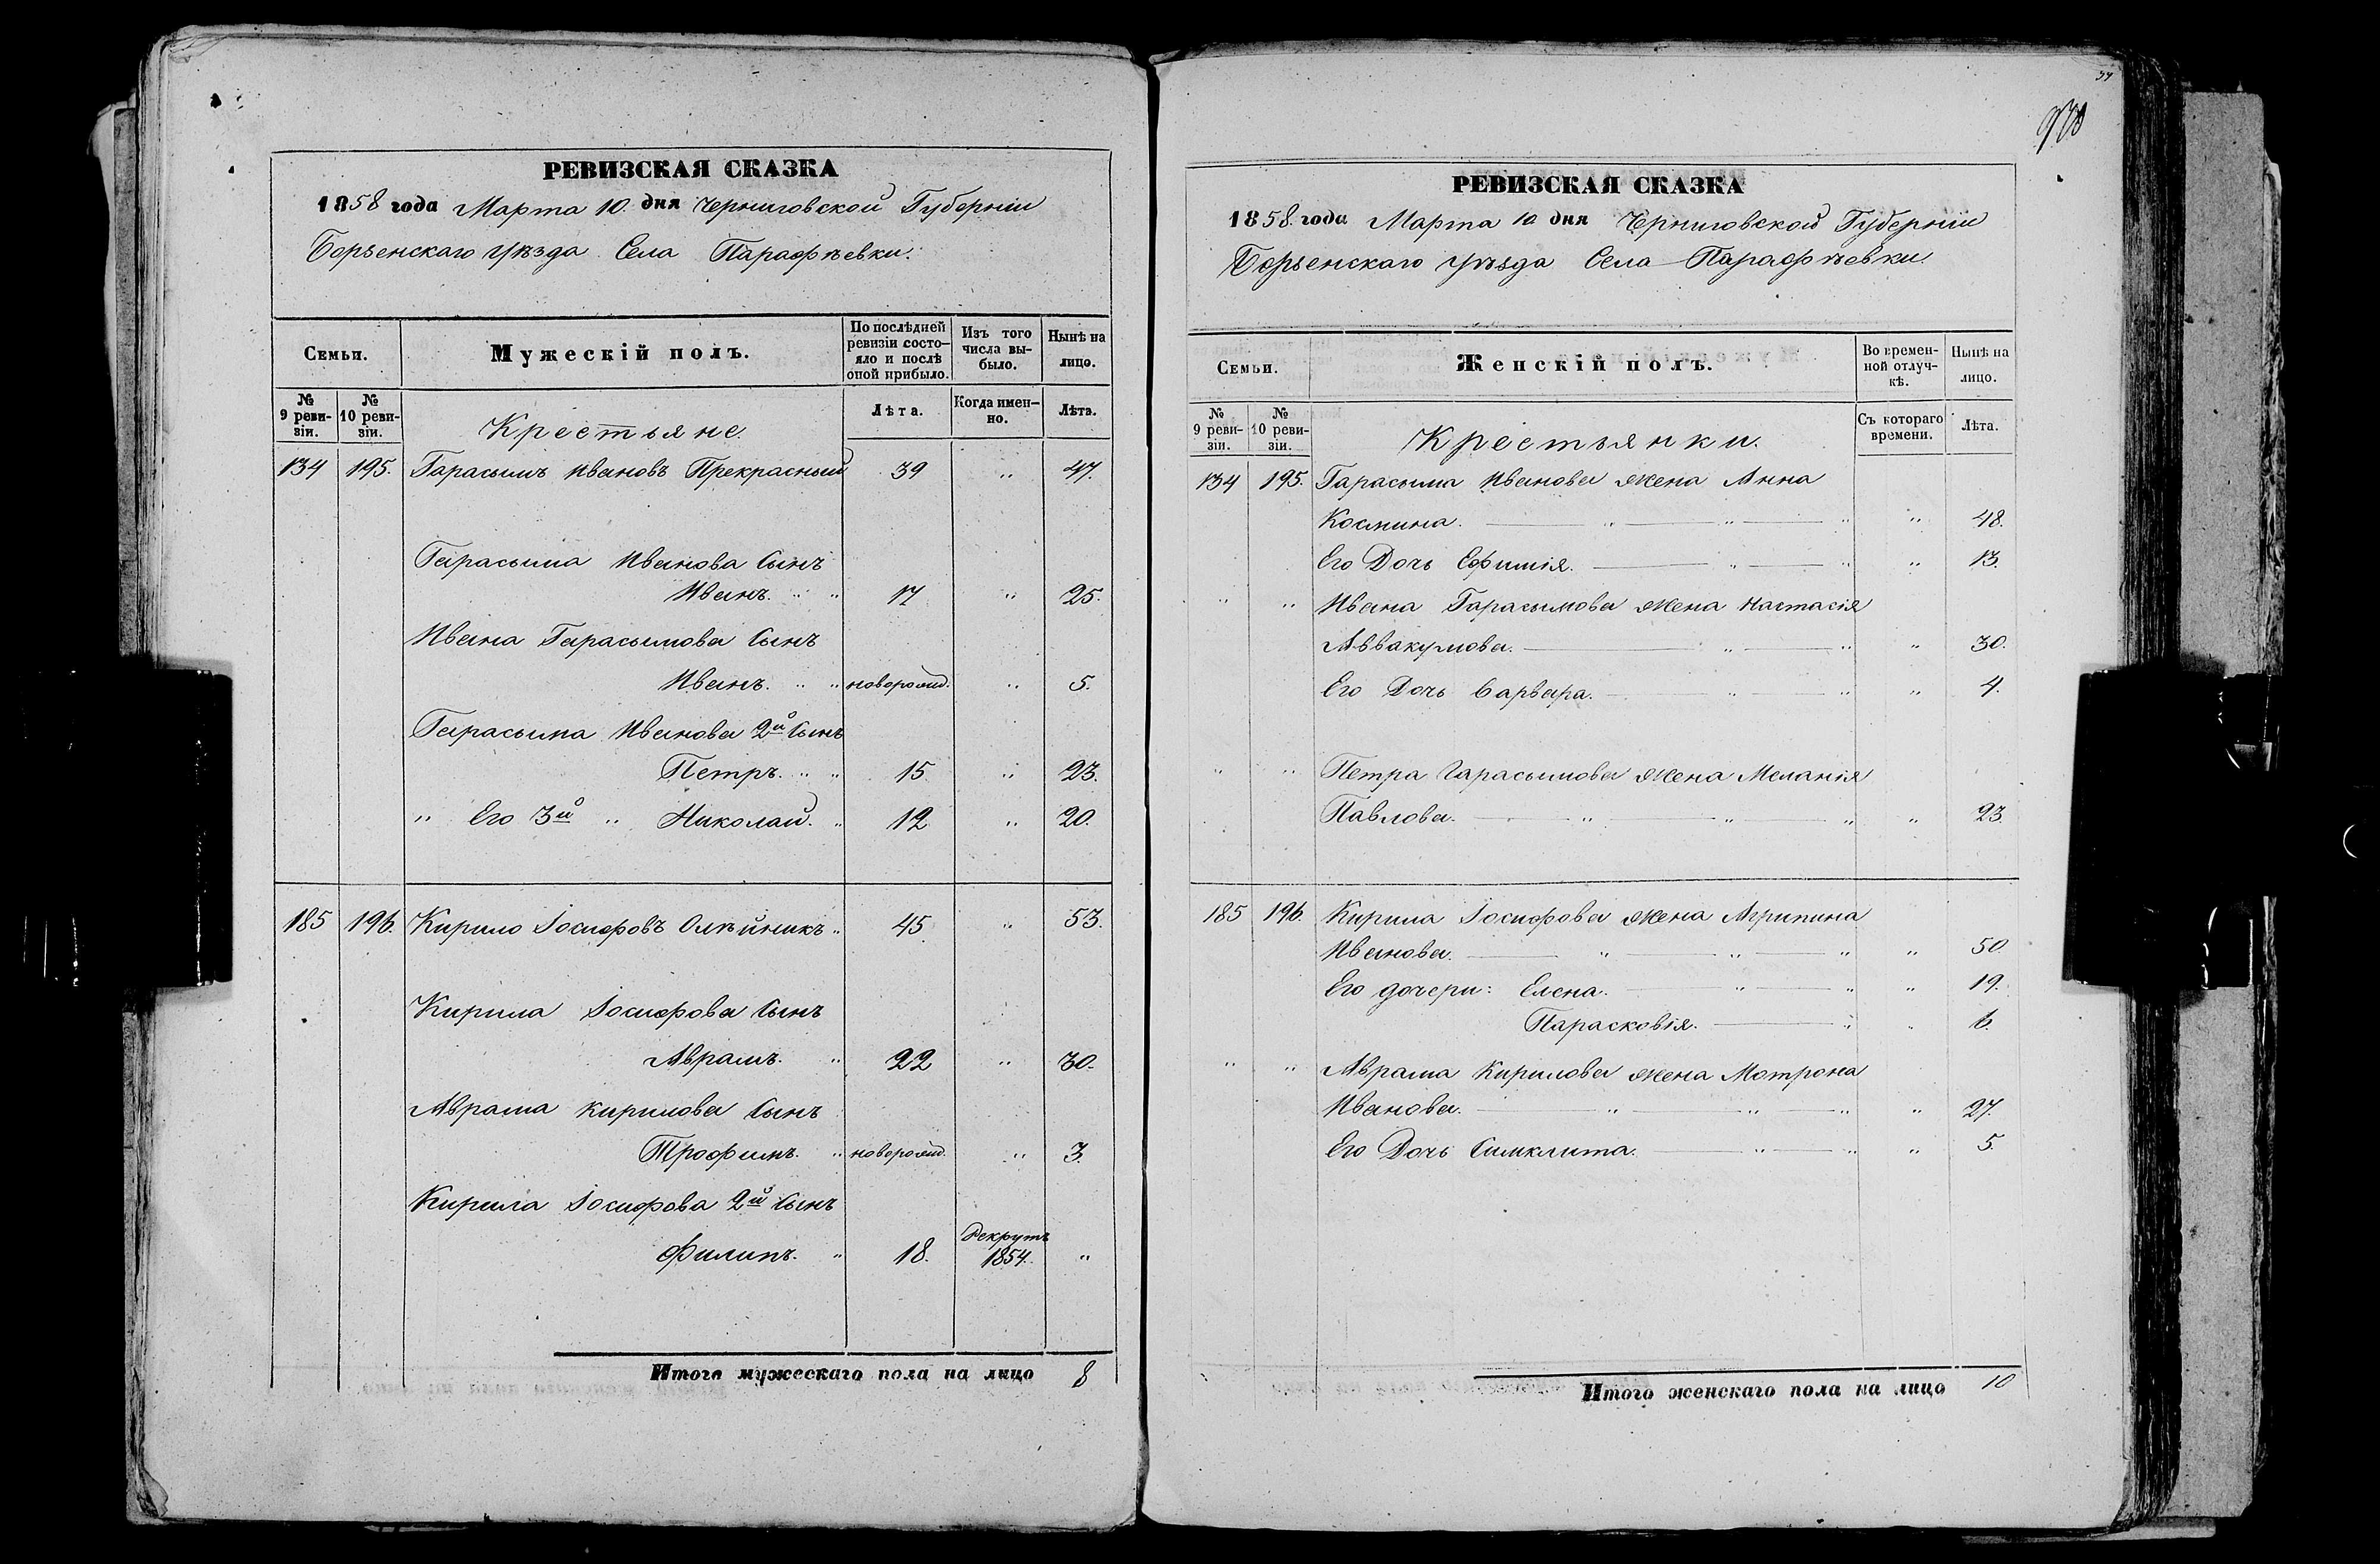 РЕВИЗСКАЯ СКАЗКА
1858 года Марта 10. дня Черниговской Губерніи
Борзенскаго Уѣзда Села Парафѣевки.
Семьи.
Мужескій полъ.
По послѣдней ревизіи состо-
яло и послѣ
оной прибыло.
Изъ того
числа вы-
было.
Нынѣ на
лицо.
№
9 реви-
зіи.
№
10 реви-
зіи.
Крестьяне.
Лѣта.
Когда имен-
но.
Лѣта.
134 195. Гарасымъ Ивановъ Прекрасный 39 " 47.
Гарасыма Иванова Сынъ
Иванъ. " " 17 " 25.
Ивана Гарасымова Сынъ
Иванъ. " " новорожд. " 5.
Гарасыма Иванова 2й Сынъ
Петръ. " " 15 " 23.
" Его 3й " Николай. " 12 " 20.
185 196. Кирило Іосифовъ Олѣйникъ " 45 " 53.
Кирила Іосифова Сынъ
Аврамъ. " 22 " 30.
Аврама Кирилова Сынъ
Трофимъ. " новорожд. " 3.
Кирила Іосифова 2й Сынъ
Рекрутъ
Филипъ. " 18. 1854. "
Итого мужескаго пола на лицо 8
РЕВИЗСКАЯ СКАЗКА
1858. года Марта 10 дня Черниговской Губерніи
Борзенскаго Уѣзда Села Парафѣевки
Семьи.
Женскій полъ.
Во времен-
ной отлуч-
кѣ.
Нынѣ на
лицо.
№
9 реви-
зіи.
№
10 реви-
зіи.
Крестьянки.
Съ котораго
времени.
Лѣта.
134 195. Гарасыма Иванова жена Анна
Космина. " " " " 48.
Его Дочь Ефимія. " " " 13.
" " Ивана Гарасымова жена Настасія
Аввакумова. " " " 30.
Его Дочь Варвара. " " " 4.
" " Петра Гарасымова жена Меланія
Павлова. " " " " 23.
185 196. Кирила Іосифова жена Агрипина
Иванова. " " " " 50
Его дочери: Елена. " " " 19.
Парасковія. " " 6.
" " Аврама Кирилова жена Мотрона
Иванова. " " " " 27.
Его Дочь Симклита. " " " 5.
Итого женскаго пола на лицо 10